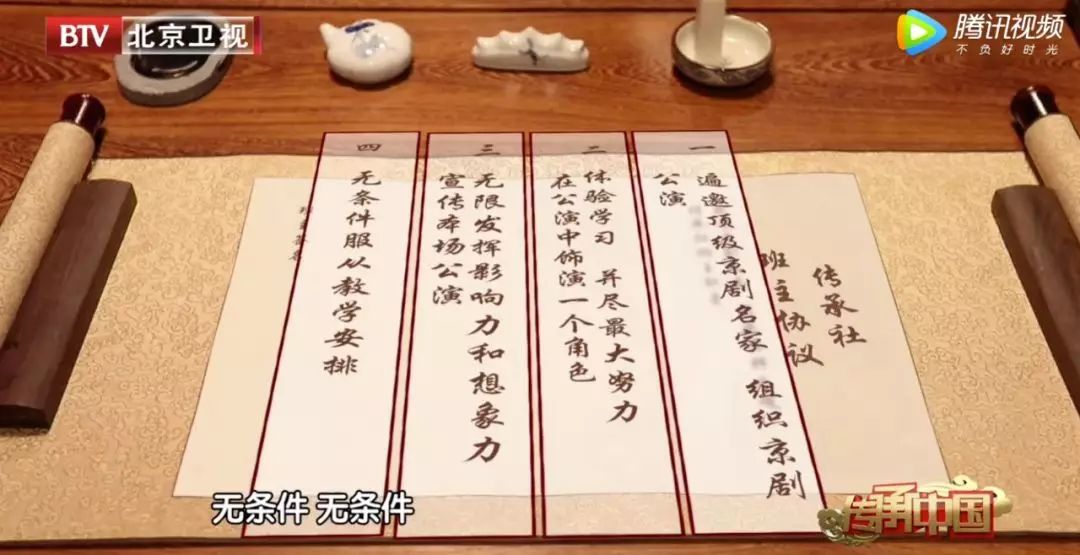 BTV 北京卫视
腾讯视频
不负好时光
传承社
班主协议
一
遍邀顶级京剧名家 组织京剧
公演
二
体验学习 并尽最大努力
在公演中饰演一个角色
三
无限发挥影响力和想象力
宣传本场公演
四
无条件服从教学安排
无条件 无条件
传承中国